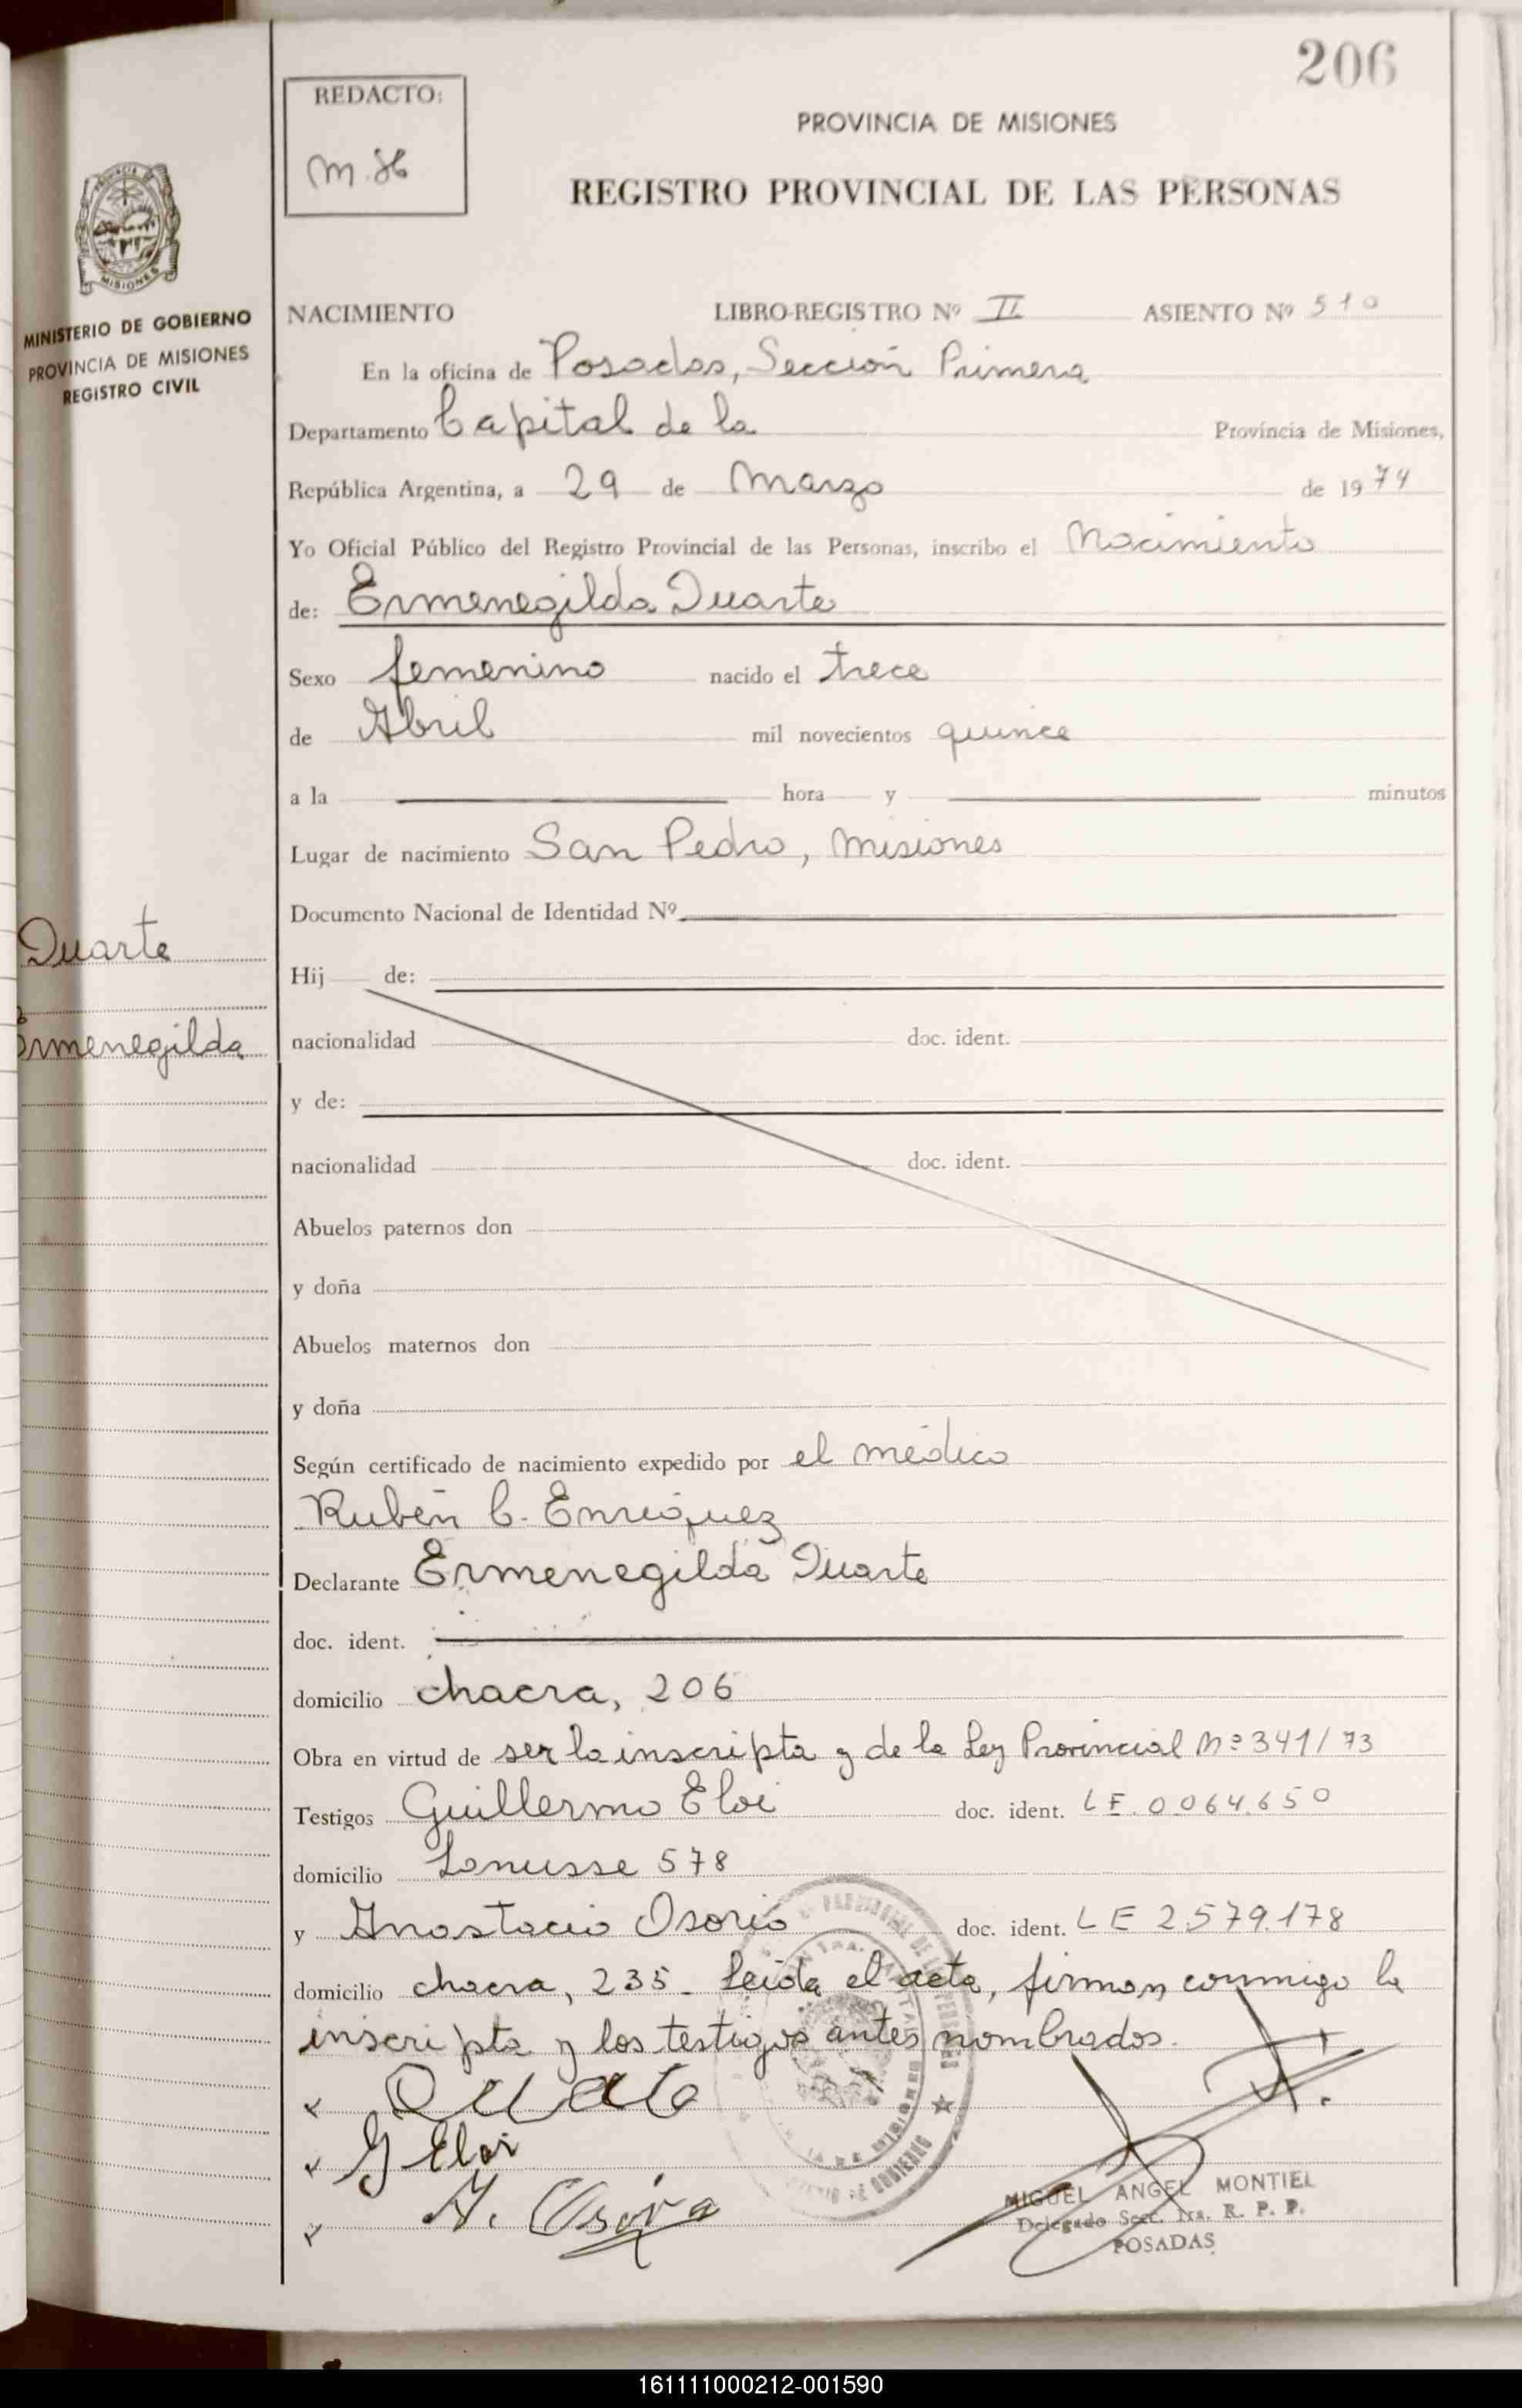 206
REDACTO:
PROVINCIA DE MISIONES
REGISTRO PROVINCIAL DE LAS PERSONAS
MISIONES
MINISTERIO DE GOBIERNO
PROVINCIA DE MISIONES
REGISTRO CIVIL
NACIMIENTO LIBRO-REGISTRO Nº II ASIENTO Nº 510
En la oficina de Posadas, Sección Primera
Departamento Capital de la Provincia de Misiones,
República Argentina, a 29 de Marzo de 1974
Yo Oficial Público del Registro Provincial de las Personas, inscribo el Nacimiento
de: Ermenegilda Duarte
Sexo femenino nacido el trece
de Abril mil novecientos quince
a la hora y minutos
Lugar de nacimiento San Pedro, Misiones
Documento Nacional de Identidad Nº
Duarte
Ermenegilda
Hij de:
nacionalidad doc. ident.
y de:
nacionalidad doc. ident.
Abuelos paternos don
y doña
Abuelos maternos don
y doña
Según certificado de nacimiento expedido por el médico
Rubén C. Enriquez
Declarante Ermenegilda Duarte
doc. ident.
domicilio chacra, 206
Obra en virtud de ser la inscripta y de la Ley Provincial Nº 341/73
Testigos Guillermo Eloi doc. ident. LE. 0.064.650
domicilio Lanusse 578
y Anastacio Osorio doc. ident. LE 2.579.178
domicilio chacra, 235. Leída el acta, firman conmigo la
inscripta y los testigos antes nombrados.
G Eloi
A. Osorio
MIGUEL ANGEL MONTIEL
Delegado Secc. 1ra. R. P. P.
POSADAS
161111000212-001590